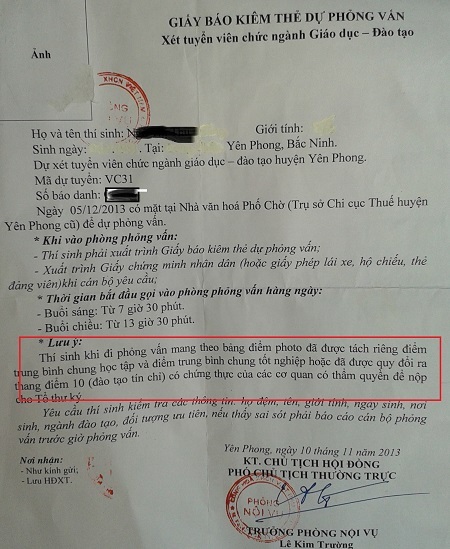 GIẤY BÁO KIÊM THẺ DỰ PHỎNG VẤN
Xét tuyển viên chức ngành Giáo dục – Đào tạo
Ảnh
Họ và tên thí sinh: N
Giới tính:
Sinh ngày: Tại: Yên Phong, Bắc Ninh.
Dự xét tuyển viên chức ngành giáo dục – đào tạo huyện Yên Phong.
Mã dự tuyển: VC31
Số báo danh:
Ngày 05/12/2013 có mặt tại Nhà văn hoá Phố Chờ (Trụ sở Chi cục Thuế huyện
Yên Phong cũ) để dự phỏng vấn.
* Khi vào phòng phỏng vấn:
- Thí sinh phải xuất trình Giấy báo kiêm thẻ dự phỏng vấn;
- Xuất trình Giấy chứng minh nhân dân (hoặc giấy phép lái xe, hộ chiếu, thẻ
đảng viên)khi cán bộ yêu cầu;
* Thời gian bắt đầu gọi vào phòng phỏng vấn hàng ngày:
- Buổi sáng: Từ 7 giờ 30 phút.
- Buổi chiều: Từ 13 giờ 30 phút.
* Lưu ý:
Thí sinh khi đi phỏng vấn mang theo bảng điểm photo đã được tách riêng điểm
trung bình chung học tập và điểm trung bình chung tốt nghiệp hoặc đã được quy đổi ra
thang điểm 10 (đào tạo tín chỉ) có chứng thực của các cơ quan có thẩm quyền để nộp
cho Tổ thư ký.
Yêu cầu thí sinh kiểm tra các thông tin: họ đệm, tên, giới tính, ngày sinh, nơi
sinh, ngành đào tạo, đối tượng ưu tiên, nếu thấy sai sót phải báo cáo cán bộ phỏng
vấn trước giờ phỏng vấn.
Yên Phong, ngày 10 tháng 11 năm 2013
Nơi nhận:
- Như kính gửi;
- Lưu HĐXT.
KT. CHỦ TỊCH HỘI ĐỒNG
PHÓ CHỦ TỊCH THƯỜNG TRỰC
PHÒNG
NỘI VỤ
TRƯỞNG PHÒNG NỘI VỤ
Lê Kim Trường